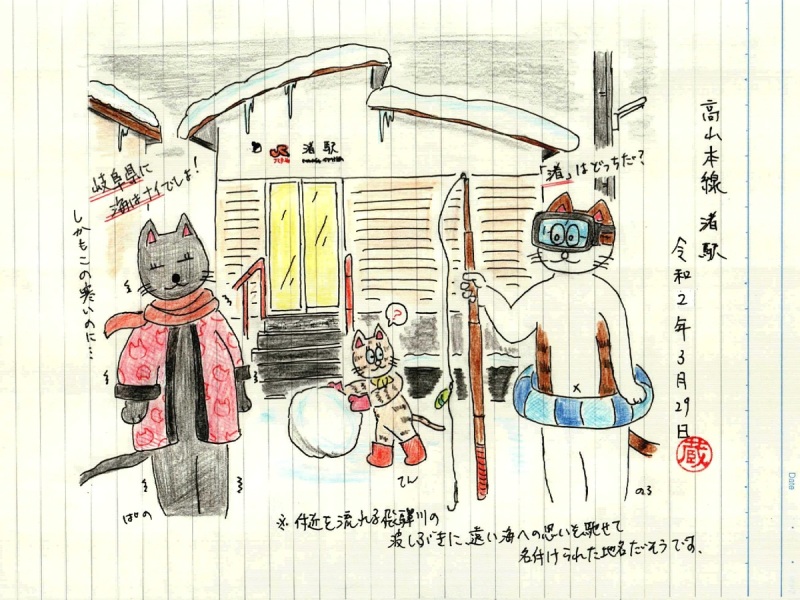 高山本線 渚駅
令和2年3月29日
蔵
JR
渚駅
岐阜県に
海はナイでしょ!
しかもこの寒いのに…
「渚」はどっちだ?
?
ぱの
てん
のろ
※付近を流れる飛騨川の
波しぶきに、遠い海への思いを馳せて
名付けられた地名だそうです。
Date